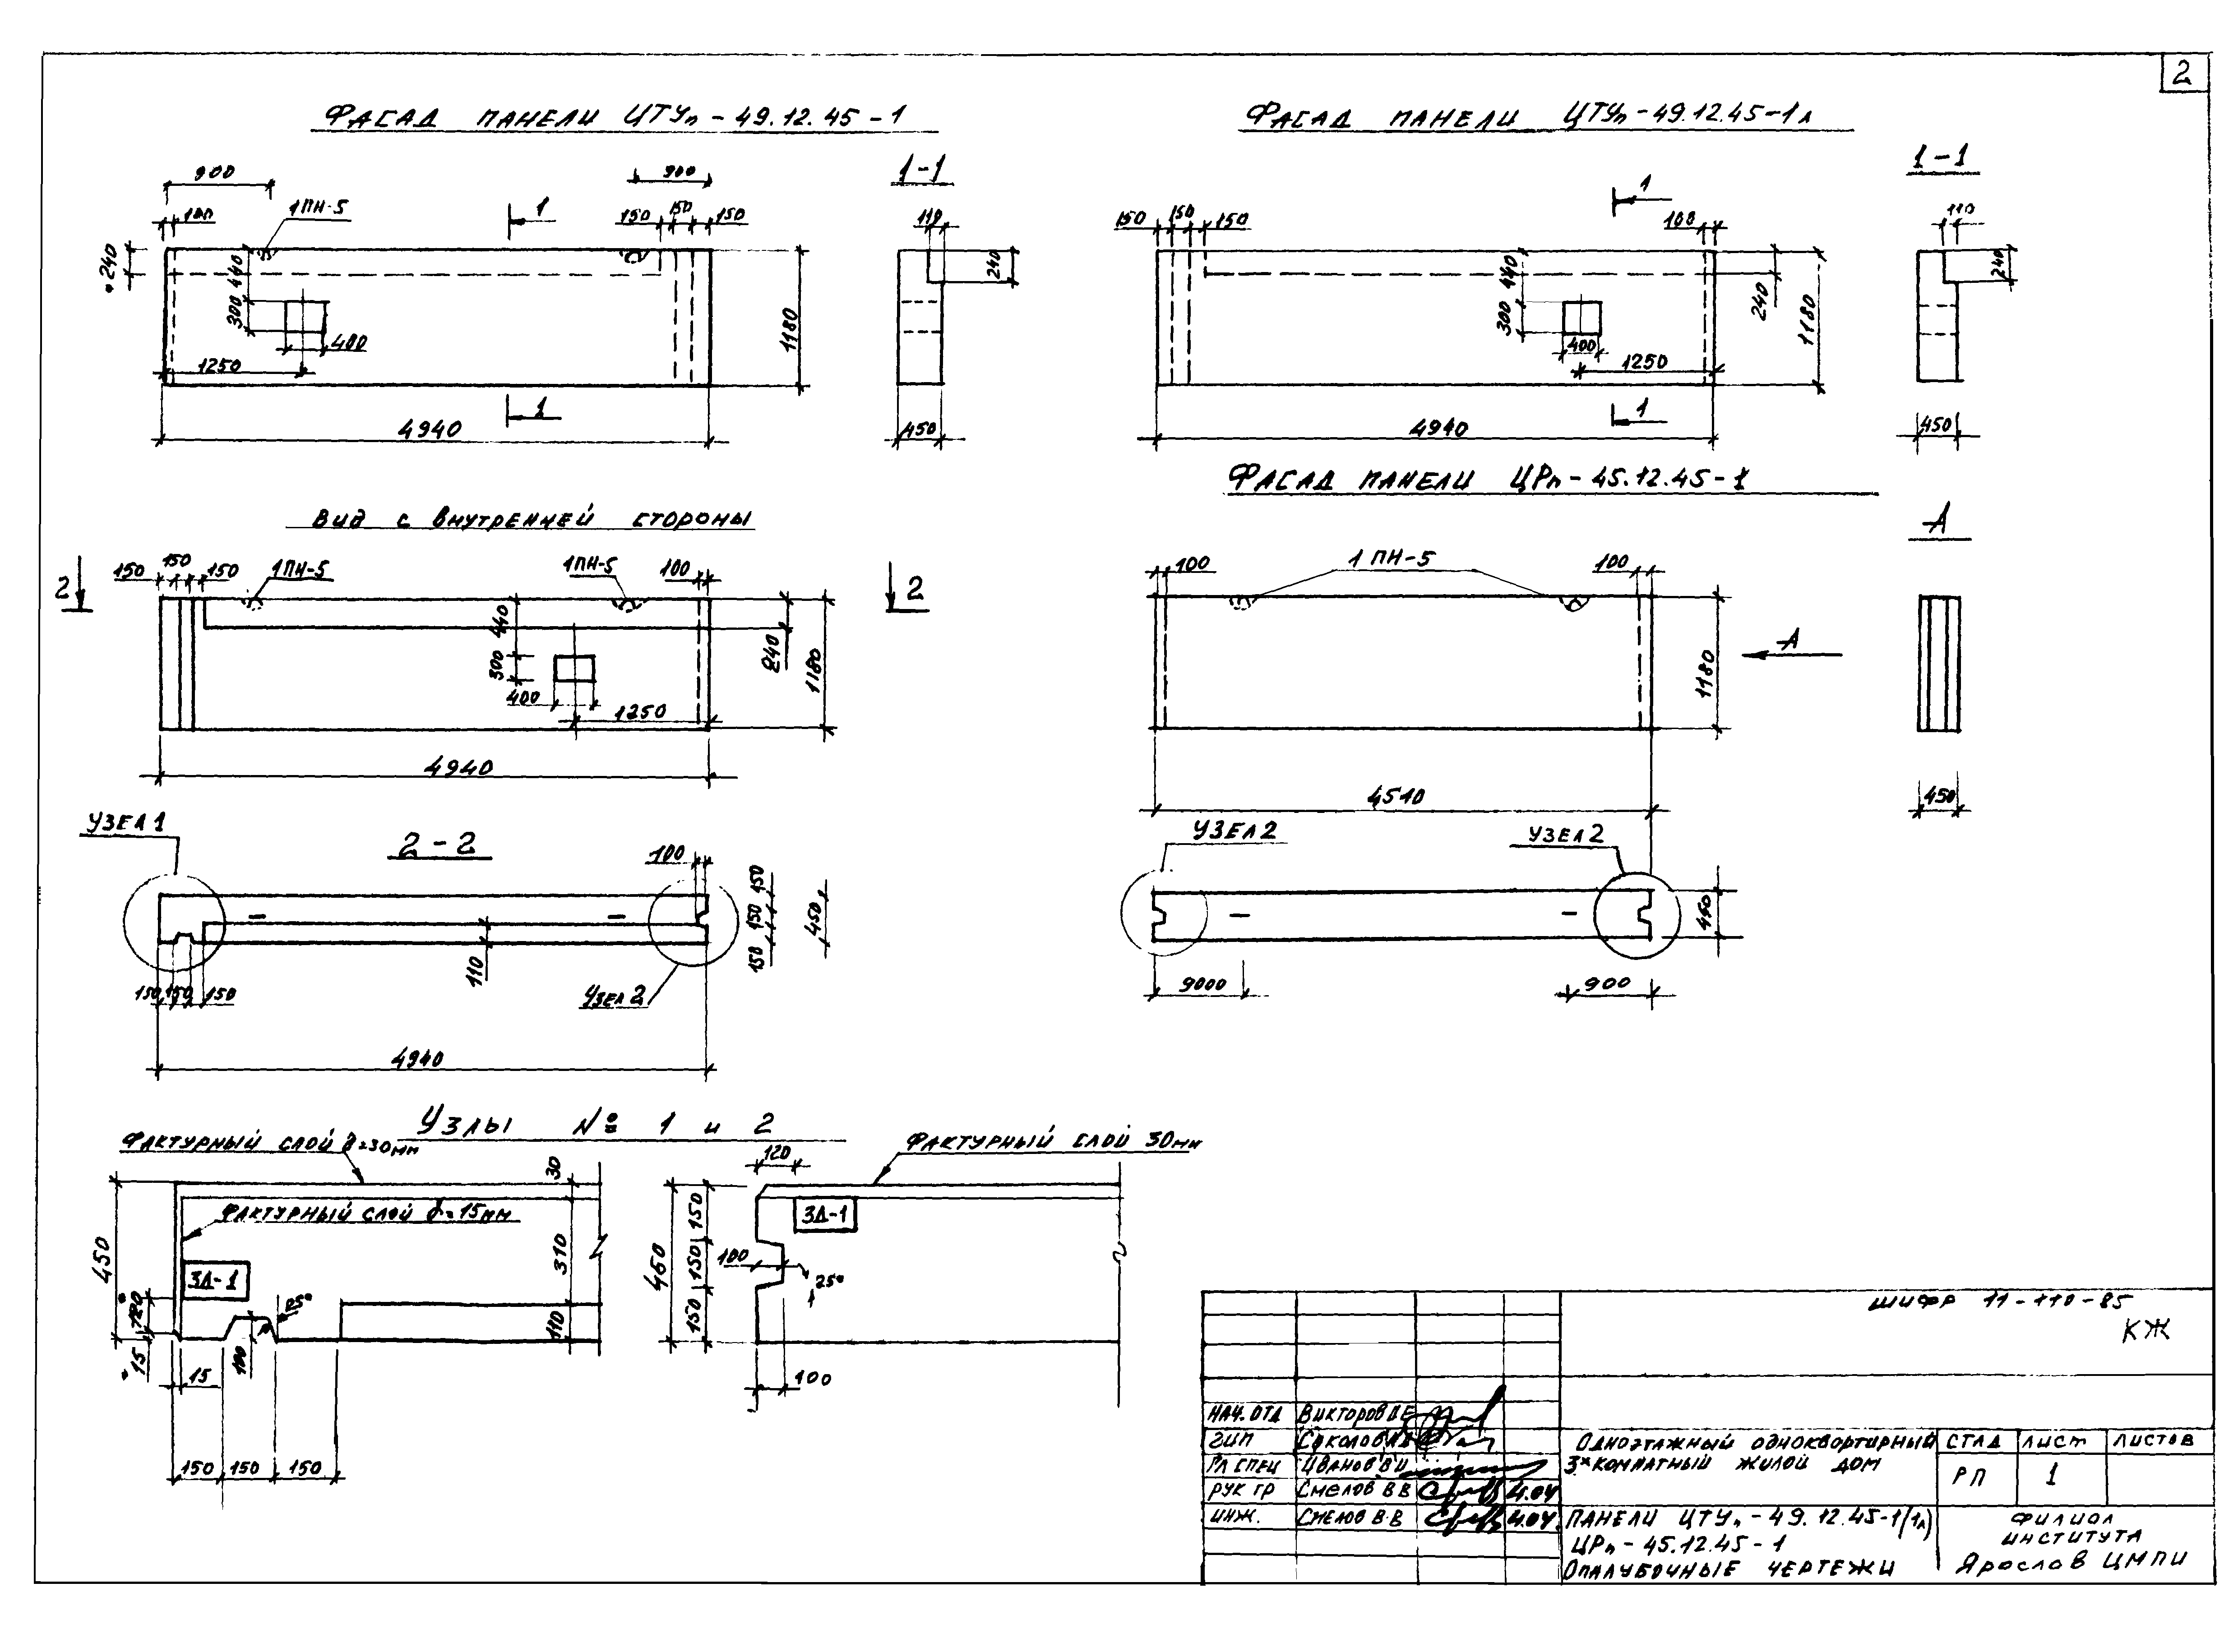 2
Фасад панели ЦТУп-49.12.45-1
900
900
1-1
100
1ПН-5
1
150
150
150
110
240
440
300
400
1250
1180
240
1
4940
450
Фасад панели ЦТУп-49.12.45-1л
1-1
150
150
150
1
100
110
440
300
400
1250
240
1180
240
1
4940
450
Вид с внутренней стороны
2
150
150
150
1ПН-5
1ПН-5
100
2
440
300
400
1250
240
1180
4940
Фасад панели ЦРп-45.12.45-1
А
100
1ПН-5
100
1180
А
4510
450
Узел 1
2-2
100
150
150
150
450
110
150
150
150
Узел 2
4940
Узел 2
Узел 2
450
9000
900
Узлы № 1 и 2
Фактурный слой δ=30мм
Фактурный слой δ=15мм
30
450
310
ЗД-1
120
25°
110
15
100
15
150
150
150
Фактурный слой 30мм
120
150
ЗД-1
460
150
100
25°
150
100
шифр 11-110-85
КЖ
Нач. отд Викторов
ГИП Соколов
Гл спец Иванов В И
Рук гр Смелов В В 4.04
Инж. Смелов В В 4.04.
Одноэтажный одноквортирный
3х комнатный жилой дом
Стад Лист Листов
РП 1
Панели ЦТУп-49.12.45-1(1л)
ЦРп-45.12.45-1
Опалубочные чертежи
Филиал
института
ЯрославЦМПИ